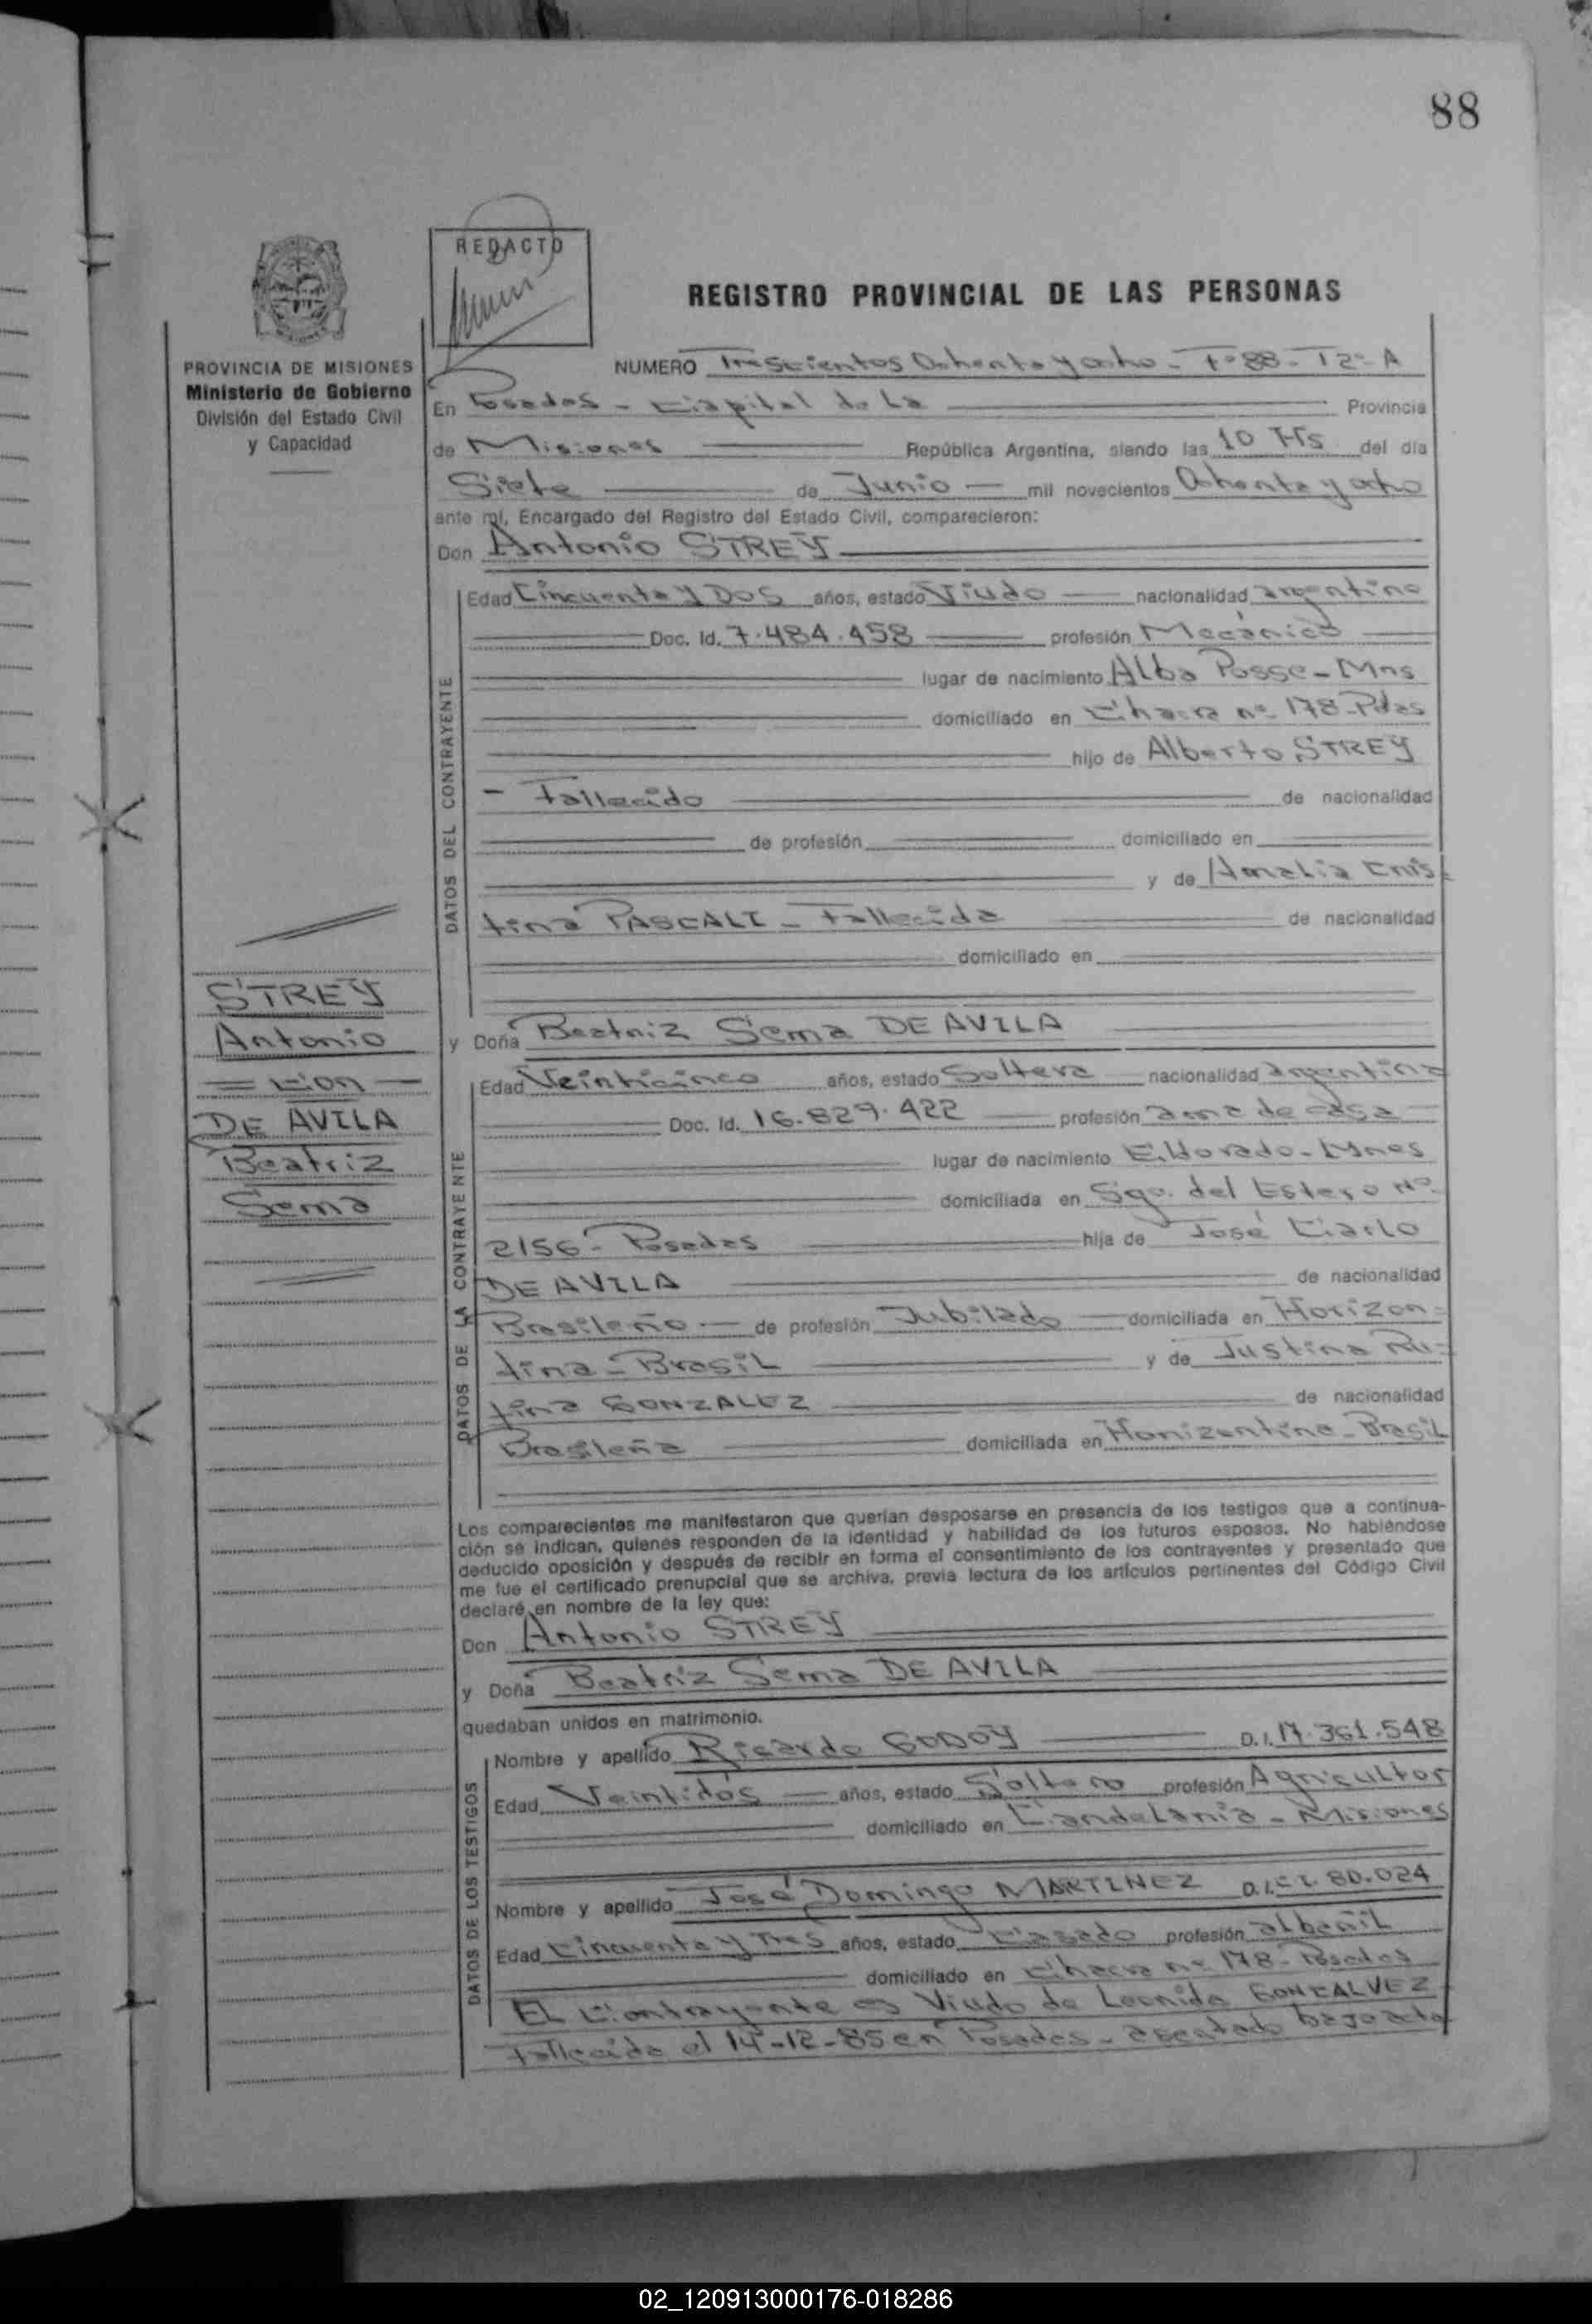 88
REDACTO
REGISTRO PROVINCIAL DE LAS PERSONAS
PROVINCIA DE MISIONES
Ministerio de Gobierno
División del Estado Civil
y Capacidad
NUMERO Trescientos Ochenta y ocho - Fº 88 - Tº 2º A
En Posadas - Capital de La Provincia
de Misiones República Argentina, siendo las 10 Hs del día
Siete de Junio mil novecientos Ochenta y ocho
ante mí, Encargado del Registro del Estado Civil, comparecieron:
Don Antonio STREY
DATOS DEL CONTRAYENTE
Edad Cincuenta y Dos años, estado Viudo nacionalidad argentino
Doc. Id. 7.484.458 profesión Mecánico
lugar de nacimiento Alba Posse - Mns
domiciliado en Chacra nº 178 - Pdas
hijo de Alberto STREY
- Fallecido de nacionalidad
de profesión domiciliado en
y de Amalia Cris
tina PASCALI - Fallecida de nacionalidad
domiciliado en
STREY
Antonio
= con -
DE AVILA
Beatriz
Sema
y Doña Beatriz Sema DE AVILA
DATOS DE LA CONTRAYENTE
Edad Veinticinco años, estado Soltera nacionalidad argentina
Doc. Id. 16.829.422 profesión ama de casa
lugar de nacimiento Eldorado - Mnes
domiciliada en Sgo. del Estero Nº
2156 - Posadas hija de José Carlo
DE AVILA de nacionalidad
Brasileño de profesión Jubilado domiciliada en Horizon=
tina - Brasil y de Justina Ru=
fina GONZALEZ de nacionalidad
Brasileña domiciliada en Horizontina - Brasil
Los comparecientes me manifestaron que querían desposarse en presencia de los testigos que a continua-
ción se indican, quienes responden de la identidad y habilidad de los futuros esposos. No habiéndose
deducido oposición y después de recibir en forma el consentimiento de los contrayentes y presentado que
me fue el certificado prenupcial que se archiva, previa lectura de los artículos pertinentes del Código Civil
declaré en nombre de la ley que:
Don Antonio STREY
y Doña Beatriz Sema DE AVILA
quedaban unidos en matrimonio.
DATOS DE LOS TESTIGOS
Nombre y apellido Ricardo GODOY D.I. 17.361.548
Edad Veintidós años, estado Soltero profesión Agricultor
domiciliado en Candelaria - Misiones
Nombre y apellido José Domingo MARTINEZ D.I. 80.024
Edad Cincuenta y Tres años, estado Casado profesión albañil
domiciliado en Chacra nº 178 - Posadas
El Contrayente es Viudo de Leonida GONCALVEZ
Fallecida el 14-12-85 en Posadas - asentado bajo acta
02_120913000176-018286